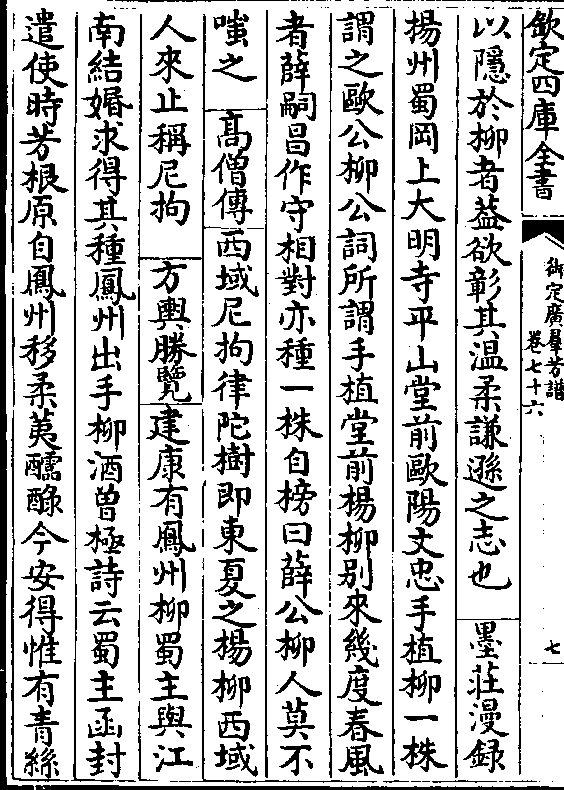 欽定四庫全書
御定廣羣芳譜
卷七十六
七
以隱於柳者葢欲彰其温柔謙遜之志也 墨莊漫録
揚州蜀岡上大明寺平山堂前歐陽文忠手植柳一株
謂之歐公柳公詞所謂手植堂前楊柳别來幾度春風
者薛嗣昌作守相對亦種一株自榜曰薛公柳人莫不
嗤之 髙僧傳 西域尼拘律陀樹即東夏之楊柳西域
人來止稱尼拘 方輿勝覽 建康有鳳州柳蜀主與江
南結婚求得其種鳳州出手柳酒曽極詩云蜀主函封
遣使時芳根原自鳳州移柔荑醹醁今安得惟有青絲